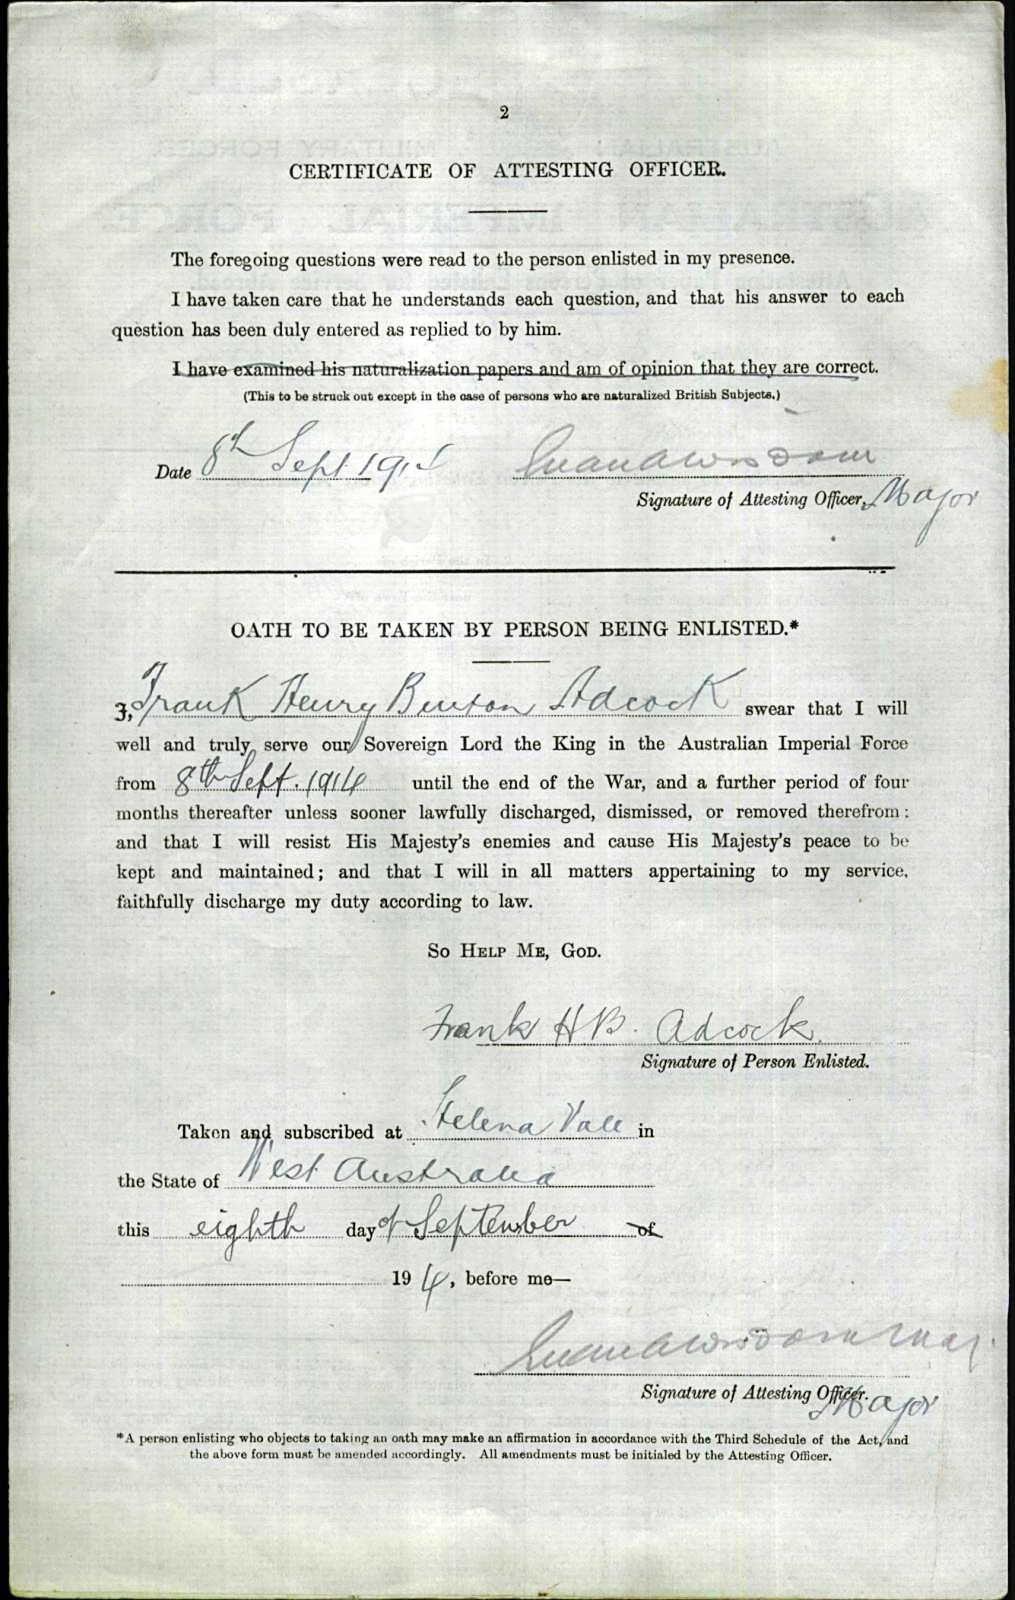 2
CERTIFICATE OF ATTESTING OFFICER.
The foregoing questions were read to the person enlisted in my presence.
I have taken care that he understands each question, and that his answer to each
question has been duly entered as replied to by him.
I have examined his naturalization papers and am of opinion that they are correct.
(This to be struck out except in the case of persons who are naturalized British Subjects.)
Date 8th Sept 1914
Signature of Attesting Officer. Major
OATH TO BE TAKEN BY PERSON BEING ENLISTED.*
I, Frank Henry Burton Adcock swear that I will
well and truly serve our Sovereign Lord the King in the Australian Imperial Force
from 8th Sept. 1914 until the end of the War, and a further period of four
months thereafter unless sooner lawfully discharged, dismissed, or removed therefrom;
and that I will resist His Majesty's enemies and cause His Majesty's peace to be
kept and maintained; and that I will in all matters appertaining to my service,
faithfully discharge my duty according to law.
So Help Me, God.
Frank H B. Adcock.
Signature of Person Enlisted.
Taken and subscribed at Helena Vale in
the State of West Australia
this eighth day of September of
19 14, before me—
Signature of Attesting Officer.
Major
*A person enlisting who objects to taking an oath may make an affirmation in accordance with the Third Schedule of the Act, and
the above form must be amended accordingly. All amendments must be initialed by the Attesting Officer.